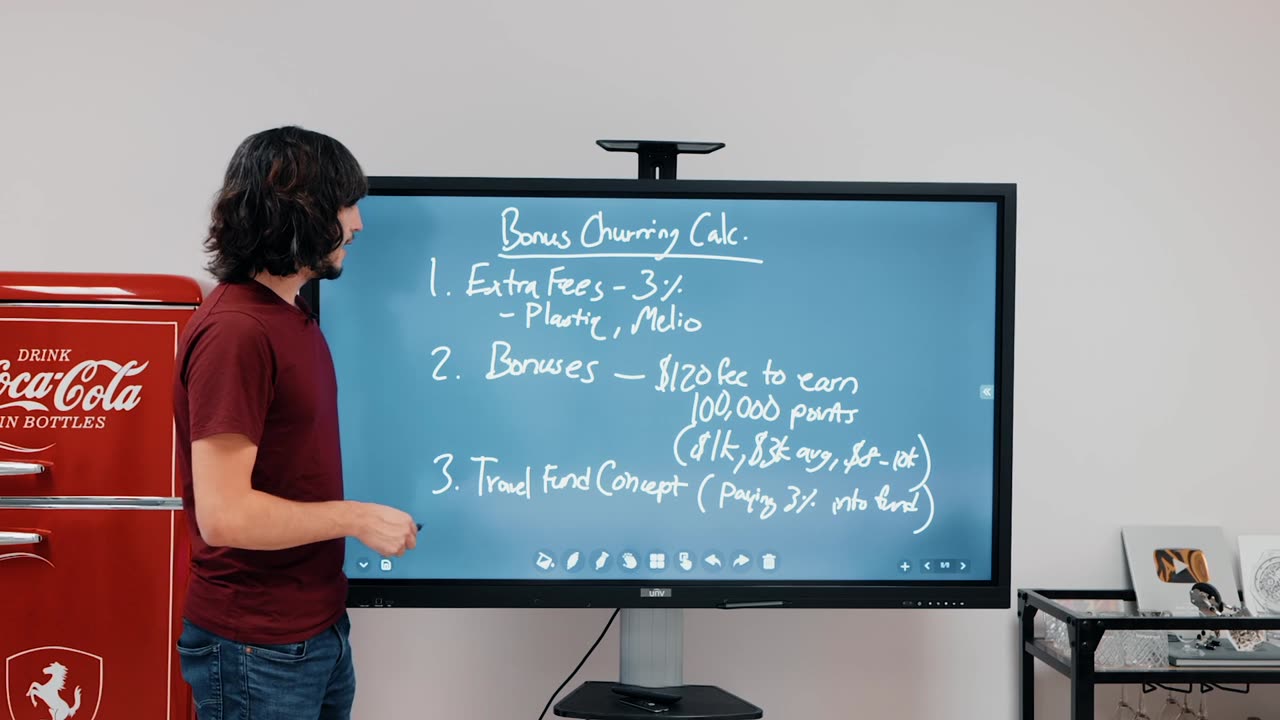 Bonus Churning Calc.
1. Extra Fees - 3%
- Plastiq, Melio
2. Bonuses - $120 fee to earn
100,000 points
($1k, $3k avg, $8-10k)
3. Travel Fund Concept (paying 3% into fund)
DRINK
Coca-Cola
IN BOTTLES
unv